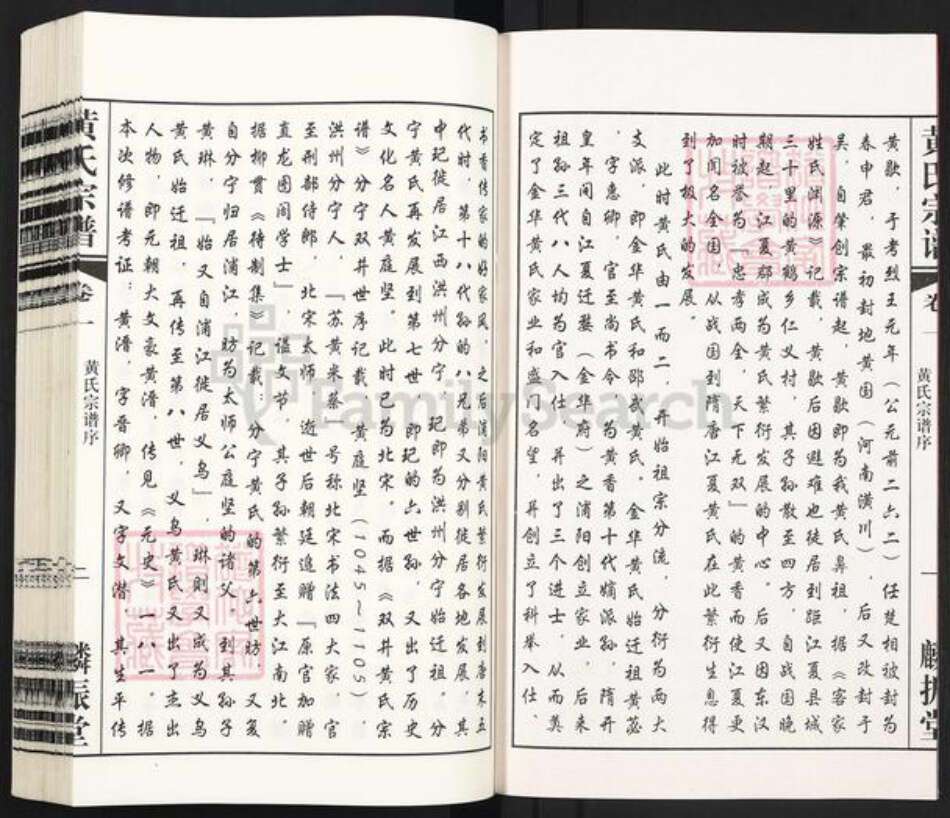 黄氏宗谱
卷一
黄氏宗谱序
一
麟振堂
黄歇，于考烈王元年（公元前二六二）任楚相被封为
春申君，最初封地黄国（河南潢川）后又改封于
吴。自肇创宗谱起，黄歇即为我黄氏鼻祖。据《客家
姓氏渊源》记载，黄歇后因避难也徒居到距江夏县城
三十里的黄鹤乡仁义村，其子孙散至四方，自战国晚
期起，江夏郡成为黄氏繁衍发展的中心。后又因东汉
时被誉为「忠孝两全，天下无双」的黄香而使江夏更
加闻名全国。从战国到隋唐江夏黄氏在此繁衍生息得
到了极大的发展。
此时黄氏由一而二，开始祖宗分流，分衍为两大
支派，即金华黄氏和邵武黄氏。金华黄氏始迁祖黄苾
，字惠卿，官至尚书令，为黄香第十代嫡派孙，隋开
皇年间自江夏迁婺（金华府）之浦阳创立家业，后来
祖孙三代八人均为官入仕，并出了三个进士，从而奠
定了金华黄氏家业和盛门名望，并创立了科举入仕、
书香传家的好家风。之后浦阳黄氏繁衍发展到唐末五
代时，第十八代孙的八兄弟又分别徒居各地发展，其
中玘徙居江西洪州分宁，玘即为洪州分宁始迁祖。分
宁黄氏再发展到第七世，即玘的六世孙，又出了历史
文化名人黄庭坚。此时已为北宋，而据《双井黄氏宗
谱》分宁双井世序记载：黄庭坚（1045～1105）
洪州分宁人，「苏黄米蔡」号称北宋书法四大家，官
至刑部侍郎，北宋太师，逝世后朝廷追赠「原官加赠
直龙图阁学士」，谥文节，其子孙繁衍至大江南北。
据柳贯《待制集》记载：分宁黄氏的第六世昉，又复
自分宁归居浦江，昉为太师公庭坚的诸父。到其孙子
黄琳，「始又自浦江徙居义乌」，琳则又成为义乌
黄氏始迁祖，再传至第八世，义乌黄氏又出了杰出
人物，即元朝大文豪黄溍，传见《元史》一八一。据
本次修谱考证：黄溍，字晋卿，又字文潜，其生平传
黄氏宗谱
卷一
黄氏宗谱序
二
麟振堂
FamilySearch